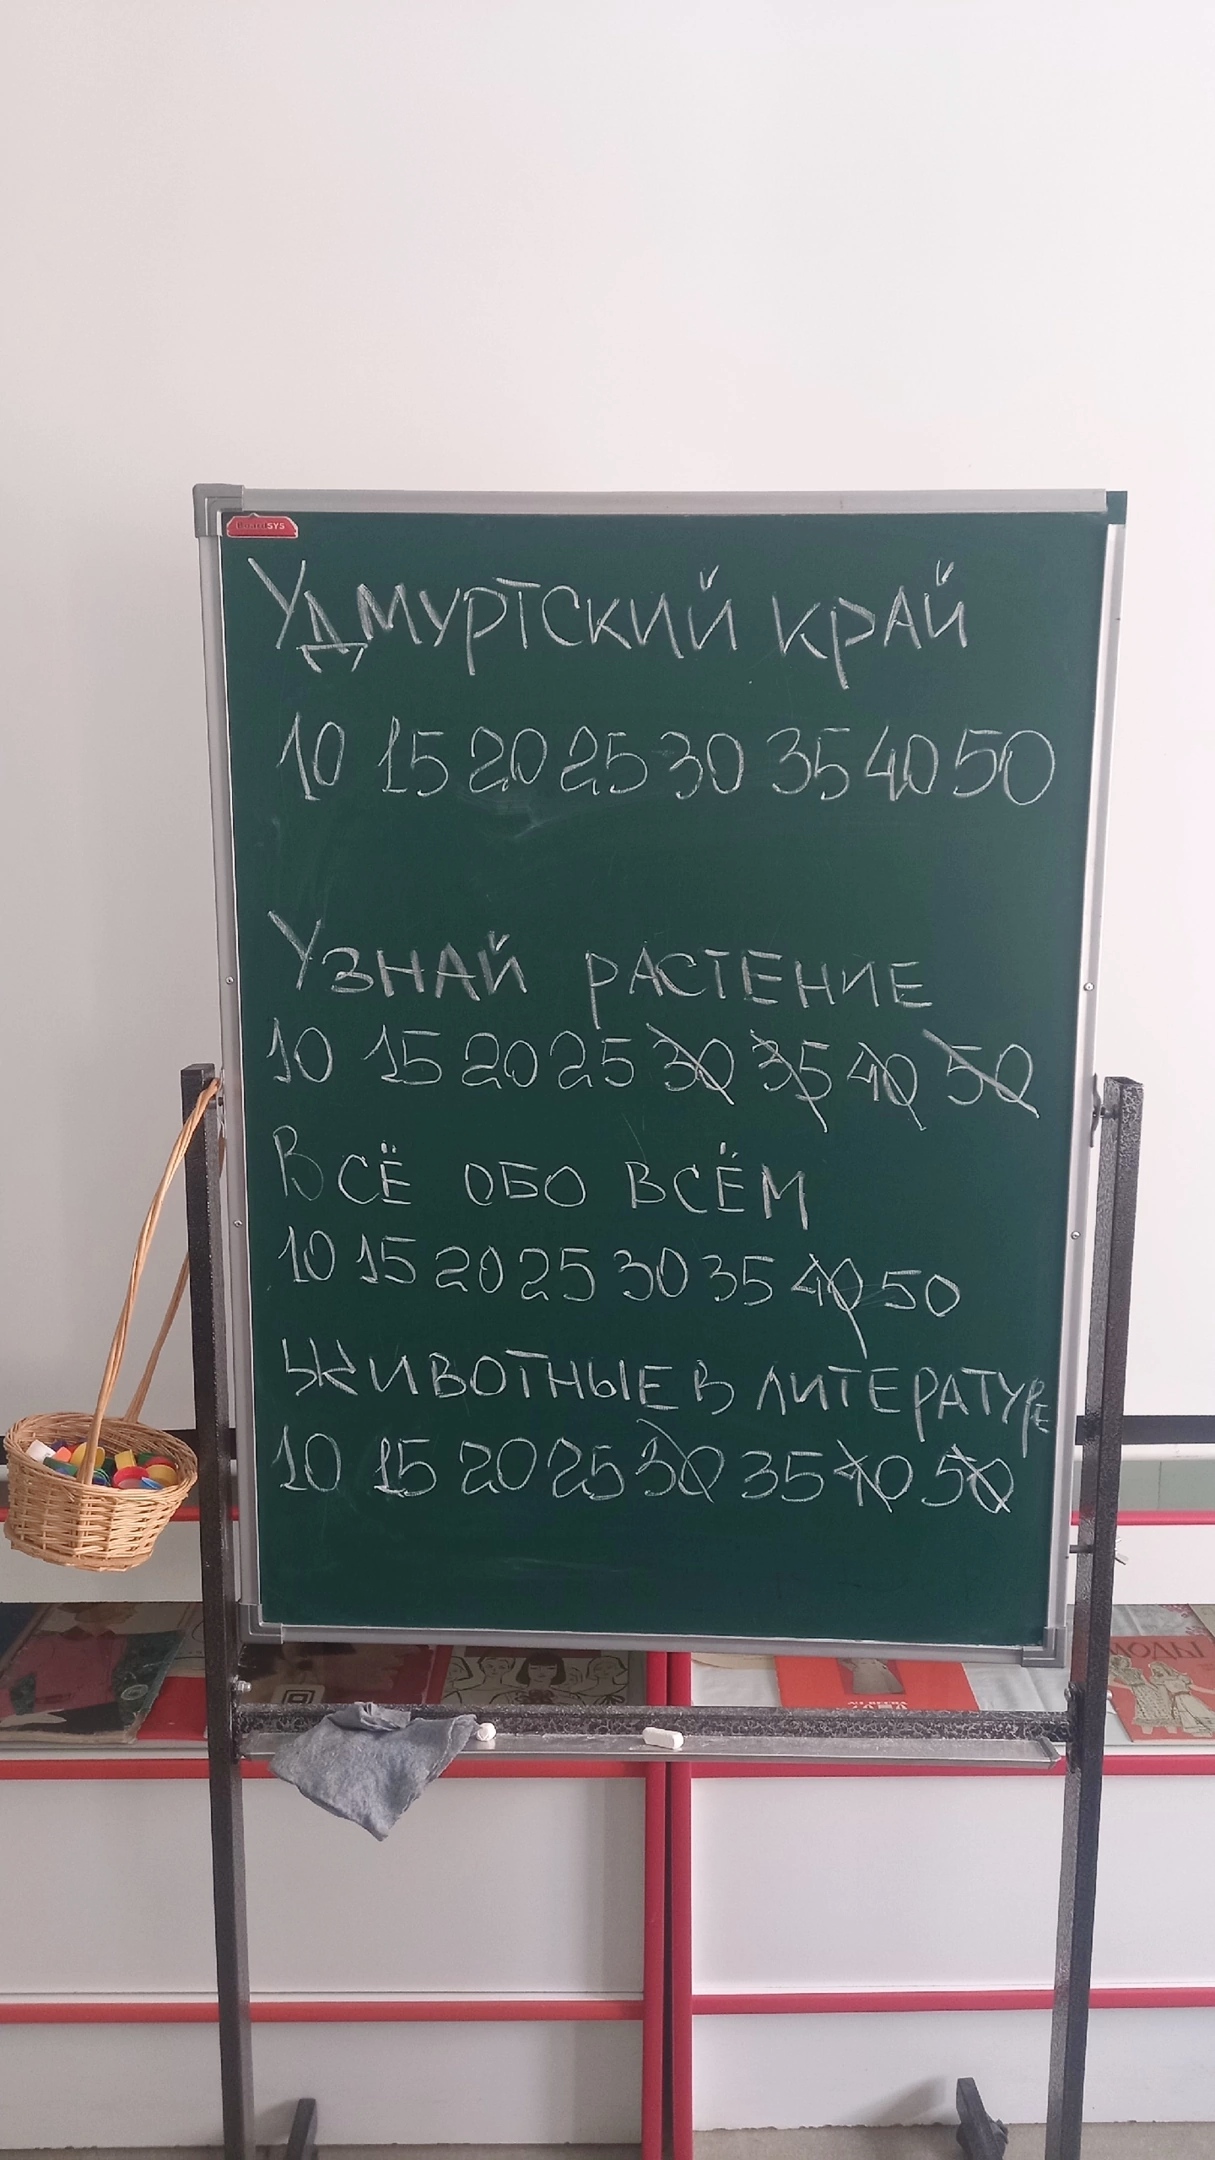 BoardSYS
Удмуртский край
10 15 20 25 30 35 40 50
Узнай растение
10 15 20 25 30 35 40 50
Всё обо всём
10 15 20 25 30 35 40 50
Животные в литературе
10 15 20 25 30 35 40 50
МОДЫ